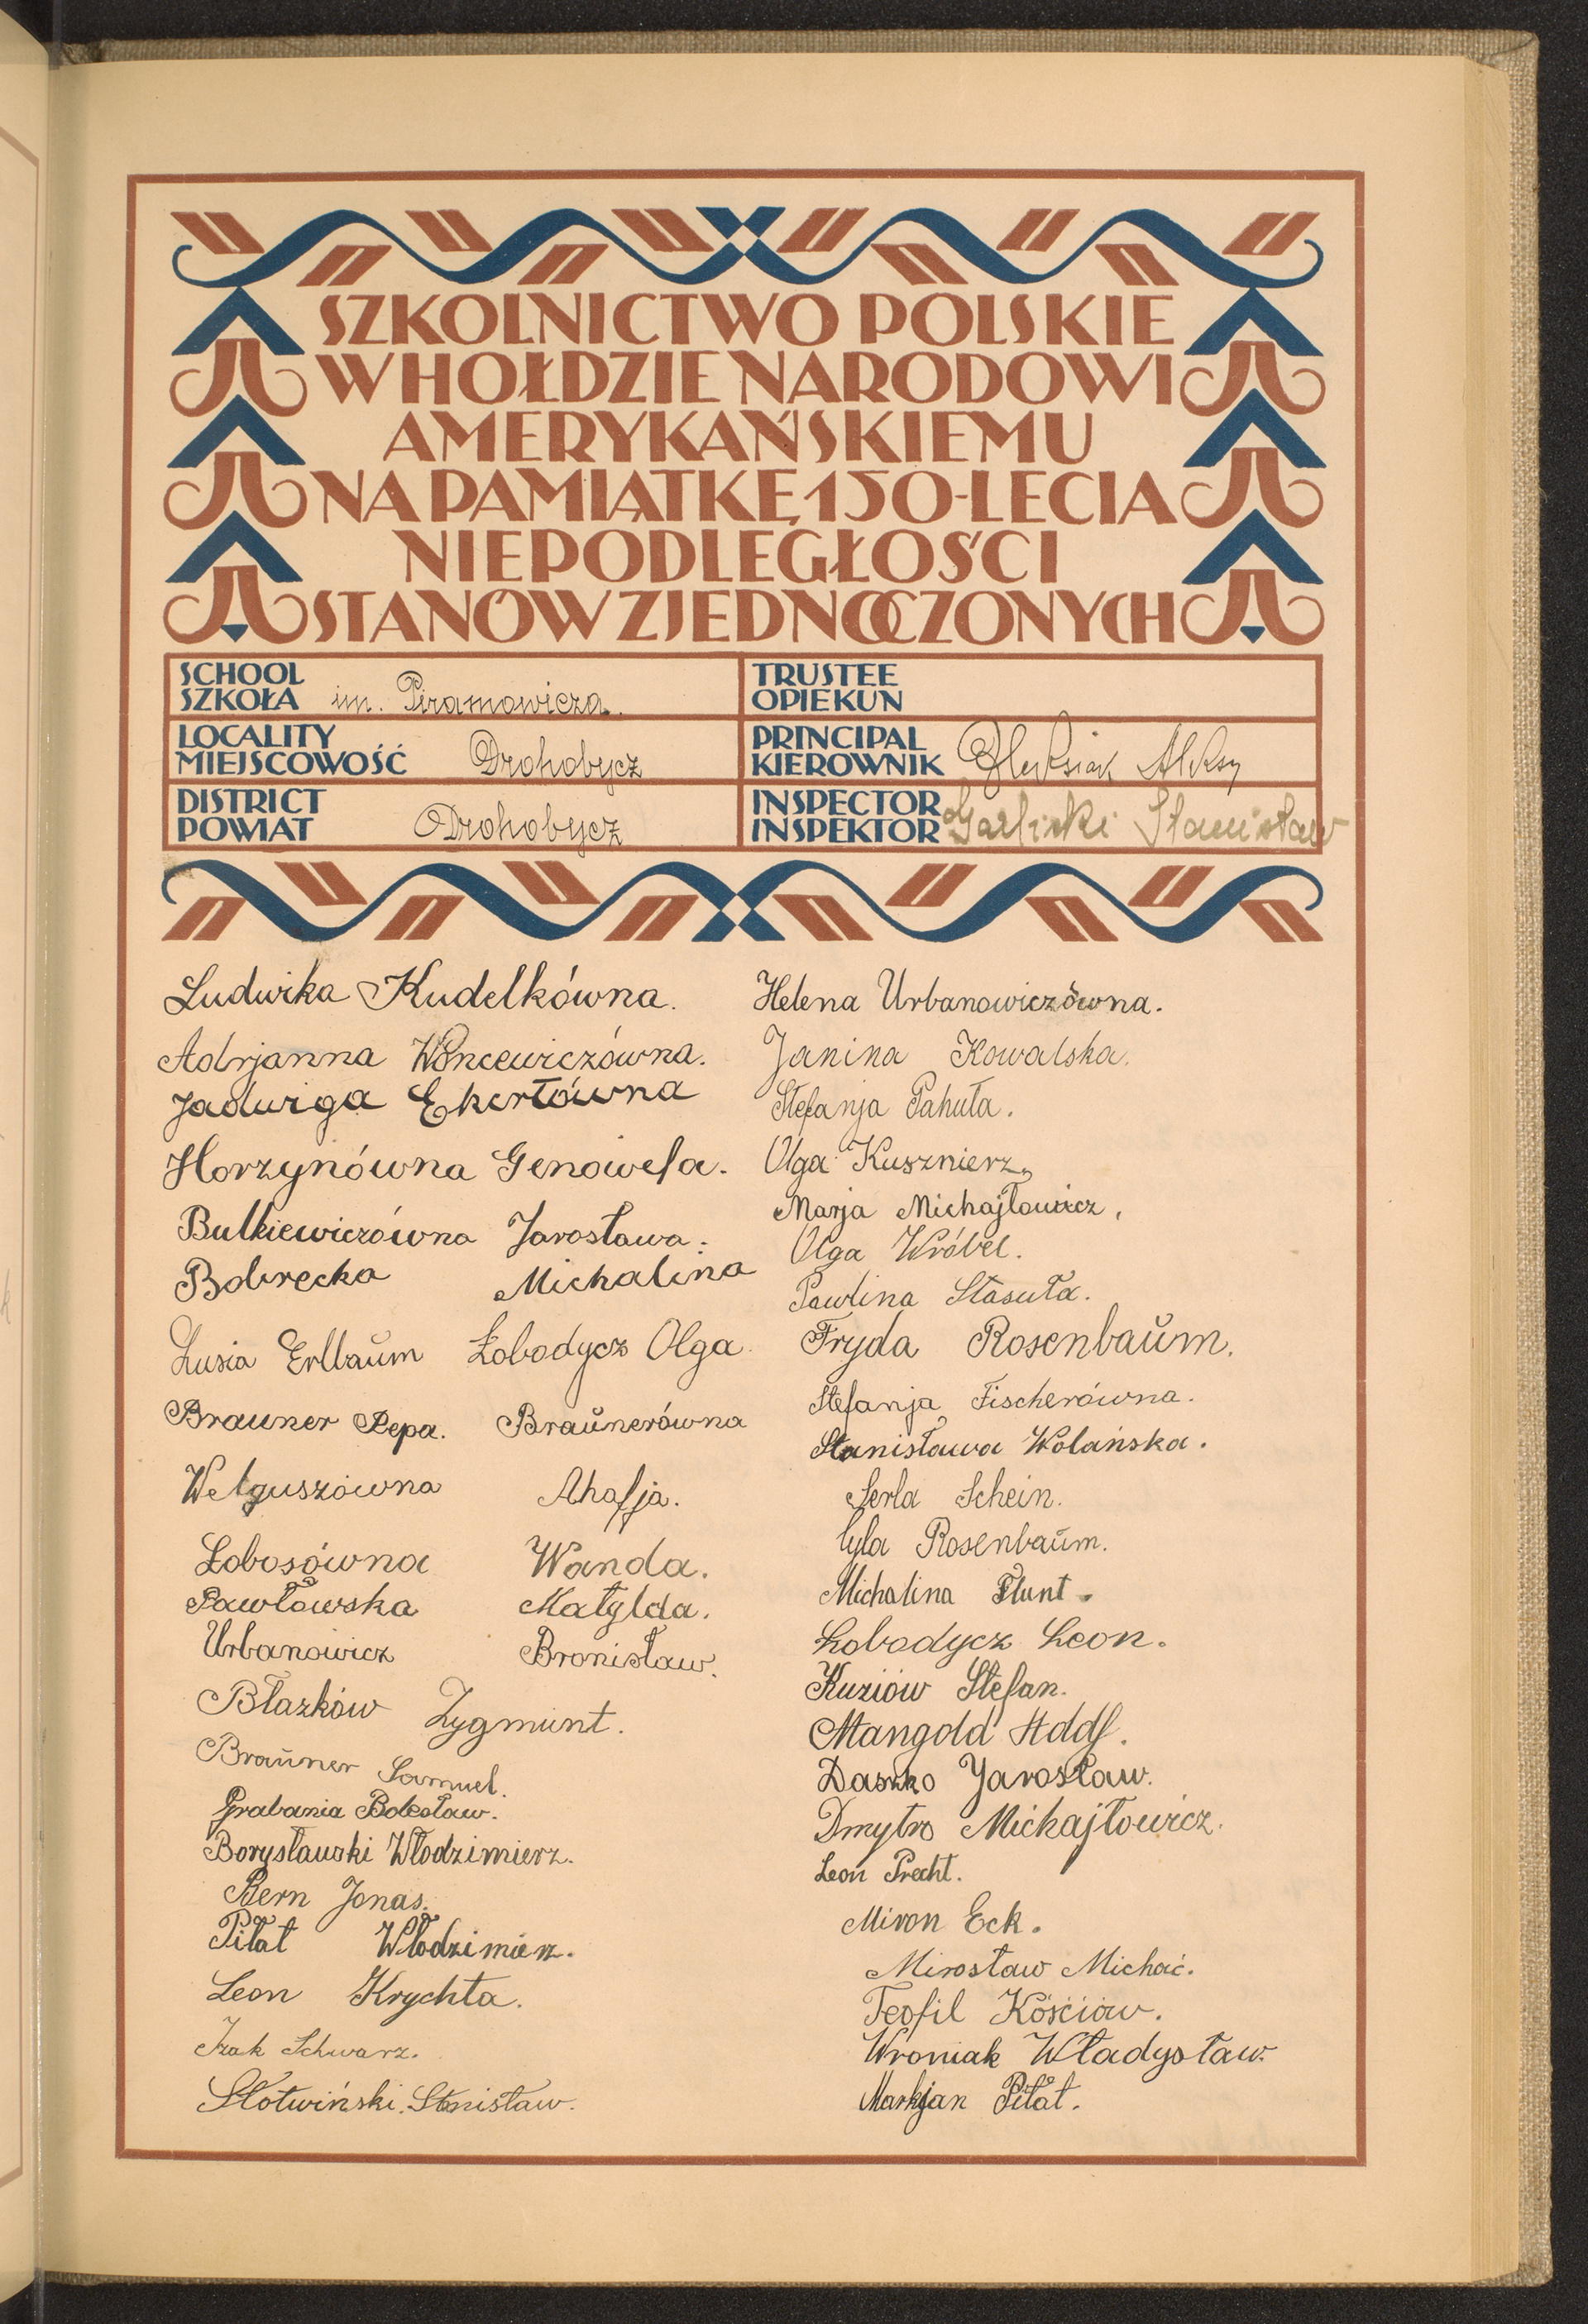 SZKOLNICTWO POLSKIE
W HOŁDZIE NARODOWI
AMERYKAŃSKIEMU
NA PAMIĄTKĘ 150-LECIA
NIEPODLEGŁOŚCI
STANÓW ZJEDNOCZONYCH
SCHOOL
SZKOŁA im. Piramowicza.
TRUSTEE
OPIEKUN
LOCALITY
MIEJSCOWOŚĆ Drohobycz
PRINCIPAL
KIEROWNIK Oleksiak Aleksy
DISTRICT
POWIAT Drohobycz
INSPECTOR
INSPEKTOR Garlicki Stanisław
Ludwika Kudelkówna.
Adrjanna Woncewiczówna.
Jadwiga Ekertówna
Horzynówna Genowefa.
Bulkiewiczówna Jarosława.
Bobrecka Michalina
Lusia Erlbaŭm Łobodycz Olga.
Brauner Pepa. Braŭnerówna
Welguszówna Ahafja.
Łobosówna Wanda.
Pawłowska Matylda.
Urbanowicz Bronisław.
Błazków Zygmunt.
Braŭner Samuel.
Grabania Bolesław.
Borysławski Włodzimierz.
Bern Jonas.
Piłat Włodzimierz.
Leon Krychta.
Izak Schwarz.
Słotwiński Stanisław.
Helena Urbanowiczówna.
Janina Kowalska.
Stefanja Pahuta.
Olga Kusznierz
Marja Michajłowicz,
Olga Wróbel.
Pawlina Stasuła.
Fryda Rosenbaŭm.
Stefanja Fischerówna.
Stanisława Wolańska.
Serla Schein.
Cyla Rosenbaŭm.
Michalina Flunt.
Łobodycz Leon.
Kuziów Stefan.
Mangold Addf.
Daszko Yarosław.
Dmytro Michajłowicz.
Leon Precht.
Miron Eck.
Mirosław Michać.
Teofil Kóściów.
Wroniak Władysław.
Markjan Piłat.